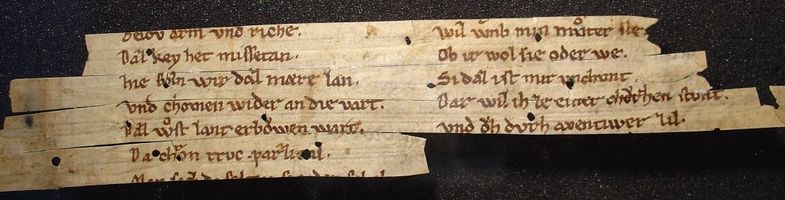 Beidiv arm vnd riche.
Daz key het missetan.
hie svln wir daz mære lan.
vnd chomen wider an die vart.
Daz wůst lant erbowen wart.
Da chron truc parzival.
wil vmb min můter
Ob ir wol sie oder we.
Si daz ist mir vnchont.
Dar wil ih ze einer chvrzen stunt.
vnd ovh dvrh aventiwer zil.